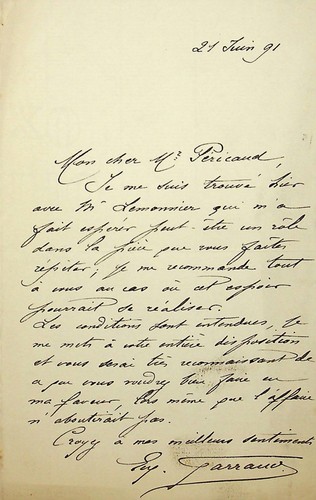 21 Juin 91
Mon cher Mr Péricaud,
Je me suis trouvé hier
avec Mr Lemonnier qui m'a
fait espérer peut-être un rôle
dans la pièce que vous faites
répéter, je me recommande tout
à vous au cas où cet espoir
pourrait se réaliser.
Les conditions sont entendues, je
me mets à votre entière disposition
et vous serai très reconnaissant de
ce que vous voudrez bien faire en
ma faveur, lors même que l'affaire
n'aboutirait pas.
Croyez à mes meilleurs sentiments
Eug. Garraud